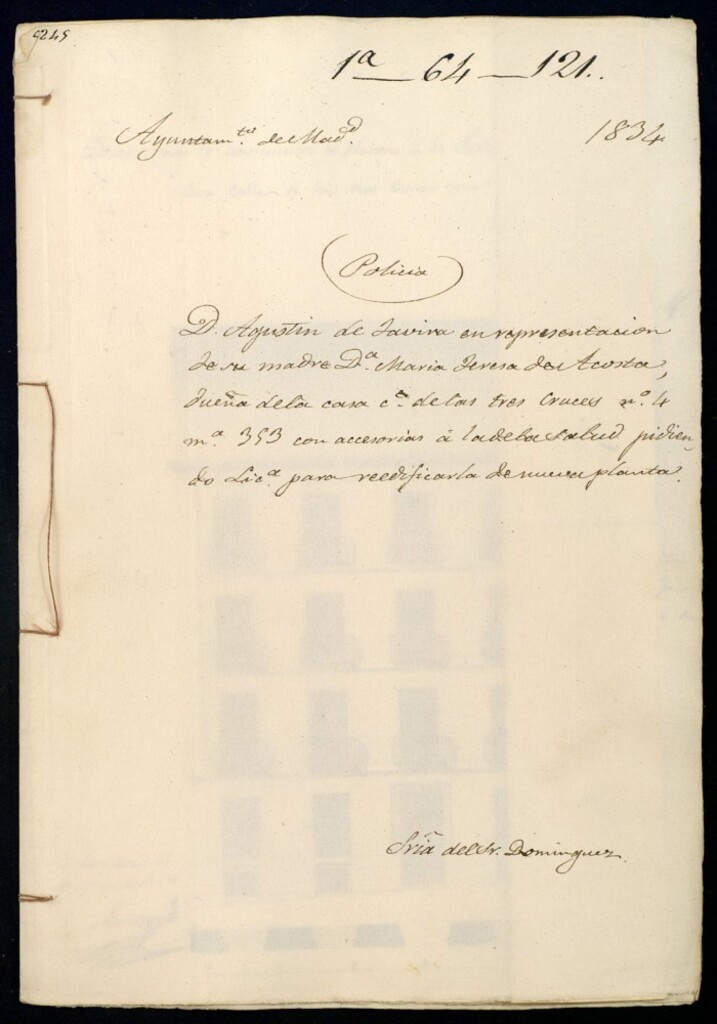 5245
1ª — 64 — 121..
Ayuntam.to de Mad.d
1834
Policia
D. Agustin de Tavira en representacion
de su madre D.ª Maria Teresa de Acosta,
dueña de la casa c.e de las tres Cruces n.º 4
m.ª 353 con accesorias á la de la Salud pidien-
do Lic.ª para reedificarla de nueva planta.
Sría del Sr. Dominguez